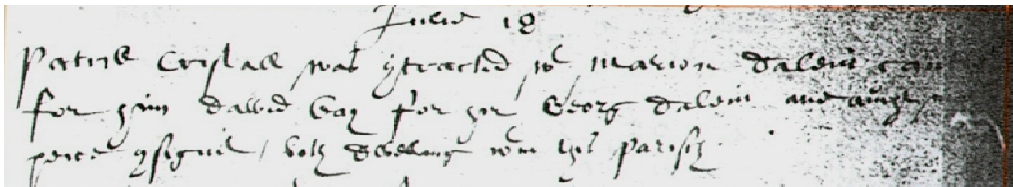 Junii 18
Patrik Cristall was 9tracted wt Marion Dalein cau
for him David Gay for hir Georg Dalein and
9signit / both dwelling wtin this parisch